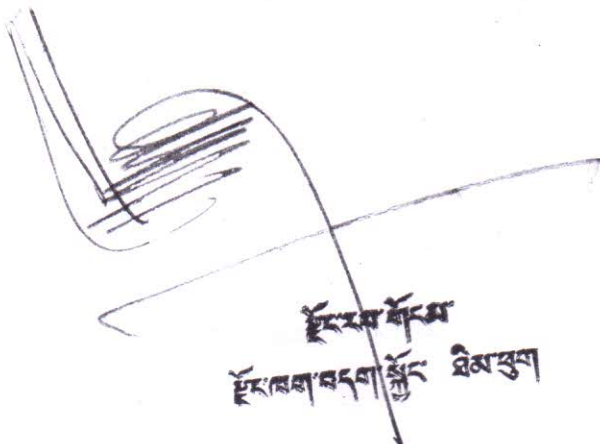 རྫོང་རབ་གོངམ
རྫོང་ཁག་བདག་སྐྱོང་ ཐིམ་ཕུག